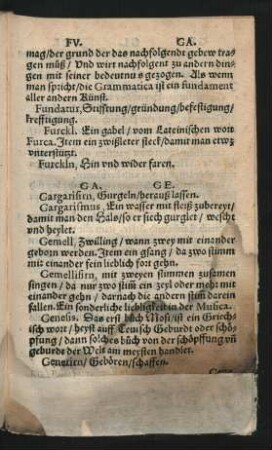 FV. GA.
mag/der grund der das nachfolgendt gebew tra⸗
gen müß/ Vnd wirt nachfolgent zu andern din⸗
gen mit seiner bedeutnuß gezogen. Als wenn
man spricht/die Grammatica ist ein fundament
aller andern Künst.
Fundatur, Stifftung/gründung/befestigung/
krefftigung.
Furckl. Ein gabel/ vom Lateinischen wort
Furca. Item ein zwißleter steck/damit man etwz
vnterstützt.
Furckln, Hin vnd wider faren.
GA. GE.
Gargarisirn, Gurgeln/herauß lassen.
Gargarismus. Ein wasser mit fleiß zubereyt/
damit man den Hals/so er siech gurglet/ wescht
vnd heylet.
Gemell, Zwilling/ wann zwey mit einander
geborn werden. Item ein gsang/ da zwo stimm
mit einander fein lieblich fort gehn.
Gemellisirn, mit zweyen stimmen zusamen
singen/ da nur zwo stim̃ ein zeyl oder mehr mit
einander gehn/ darnach die andern stim̃ darein
fallen. Ein sonderliche liebligkeit in der Musica.
Genesis. Das erst bůch Mosi/ist ein Griech⸗
isch wort/ heyst auff Teusch Geburdt oder schöp⸗
pfung/ dann solches bůch von der schöpffung vn̄
geburde der Welt am meysten handlet.
Generirn/ Gebören/schaffen.